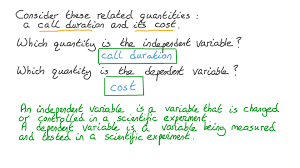 Consider these related quantities :
a call duration and its cost.
Which quantity is the independent variable ?
call duration
Which quantity is the dependent variable ?
cost
An independent variable is a variable that is changed
or controlled in a scientific experiment.
A dependent variable is a variable being measured
and tested in a scientific experiment.